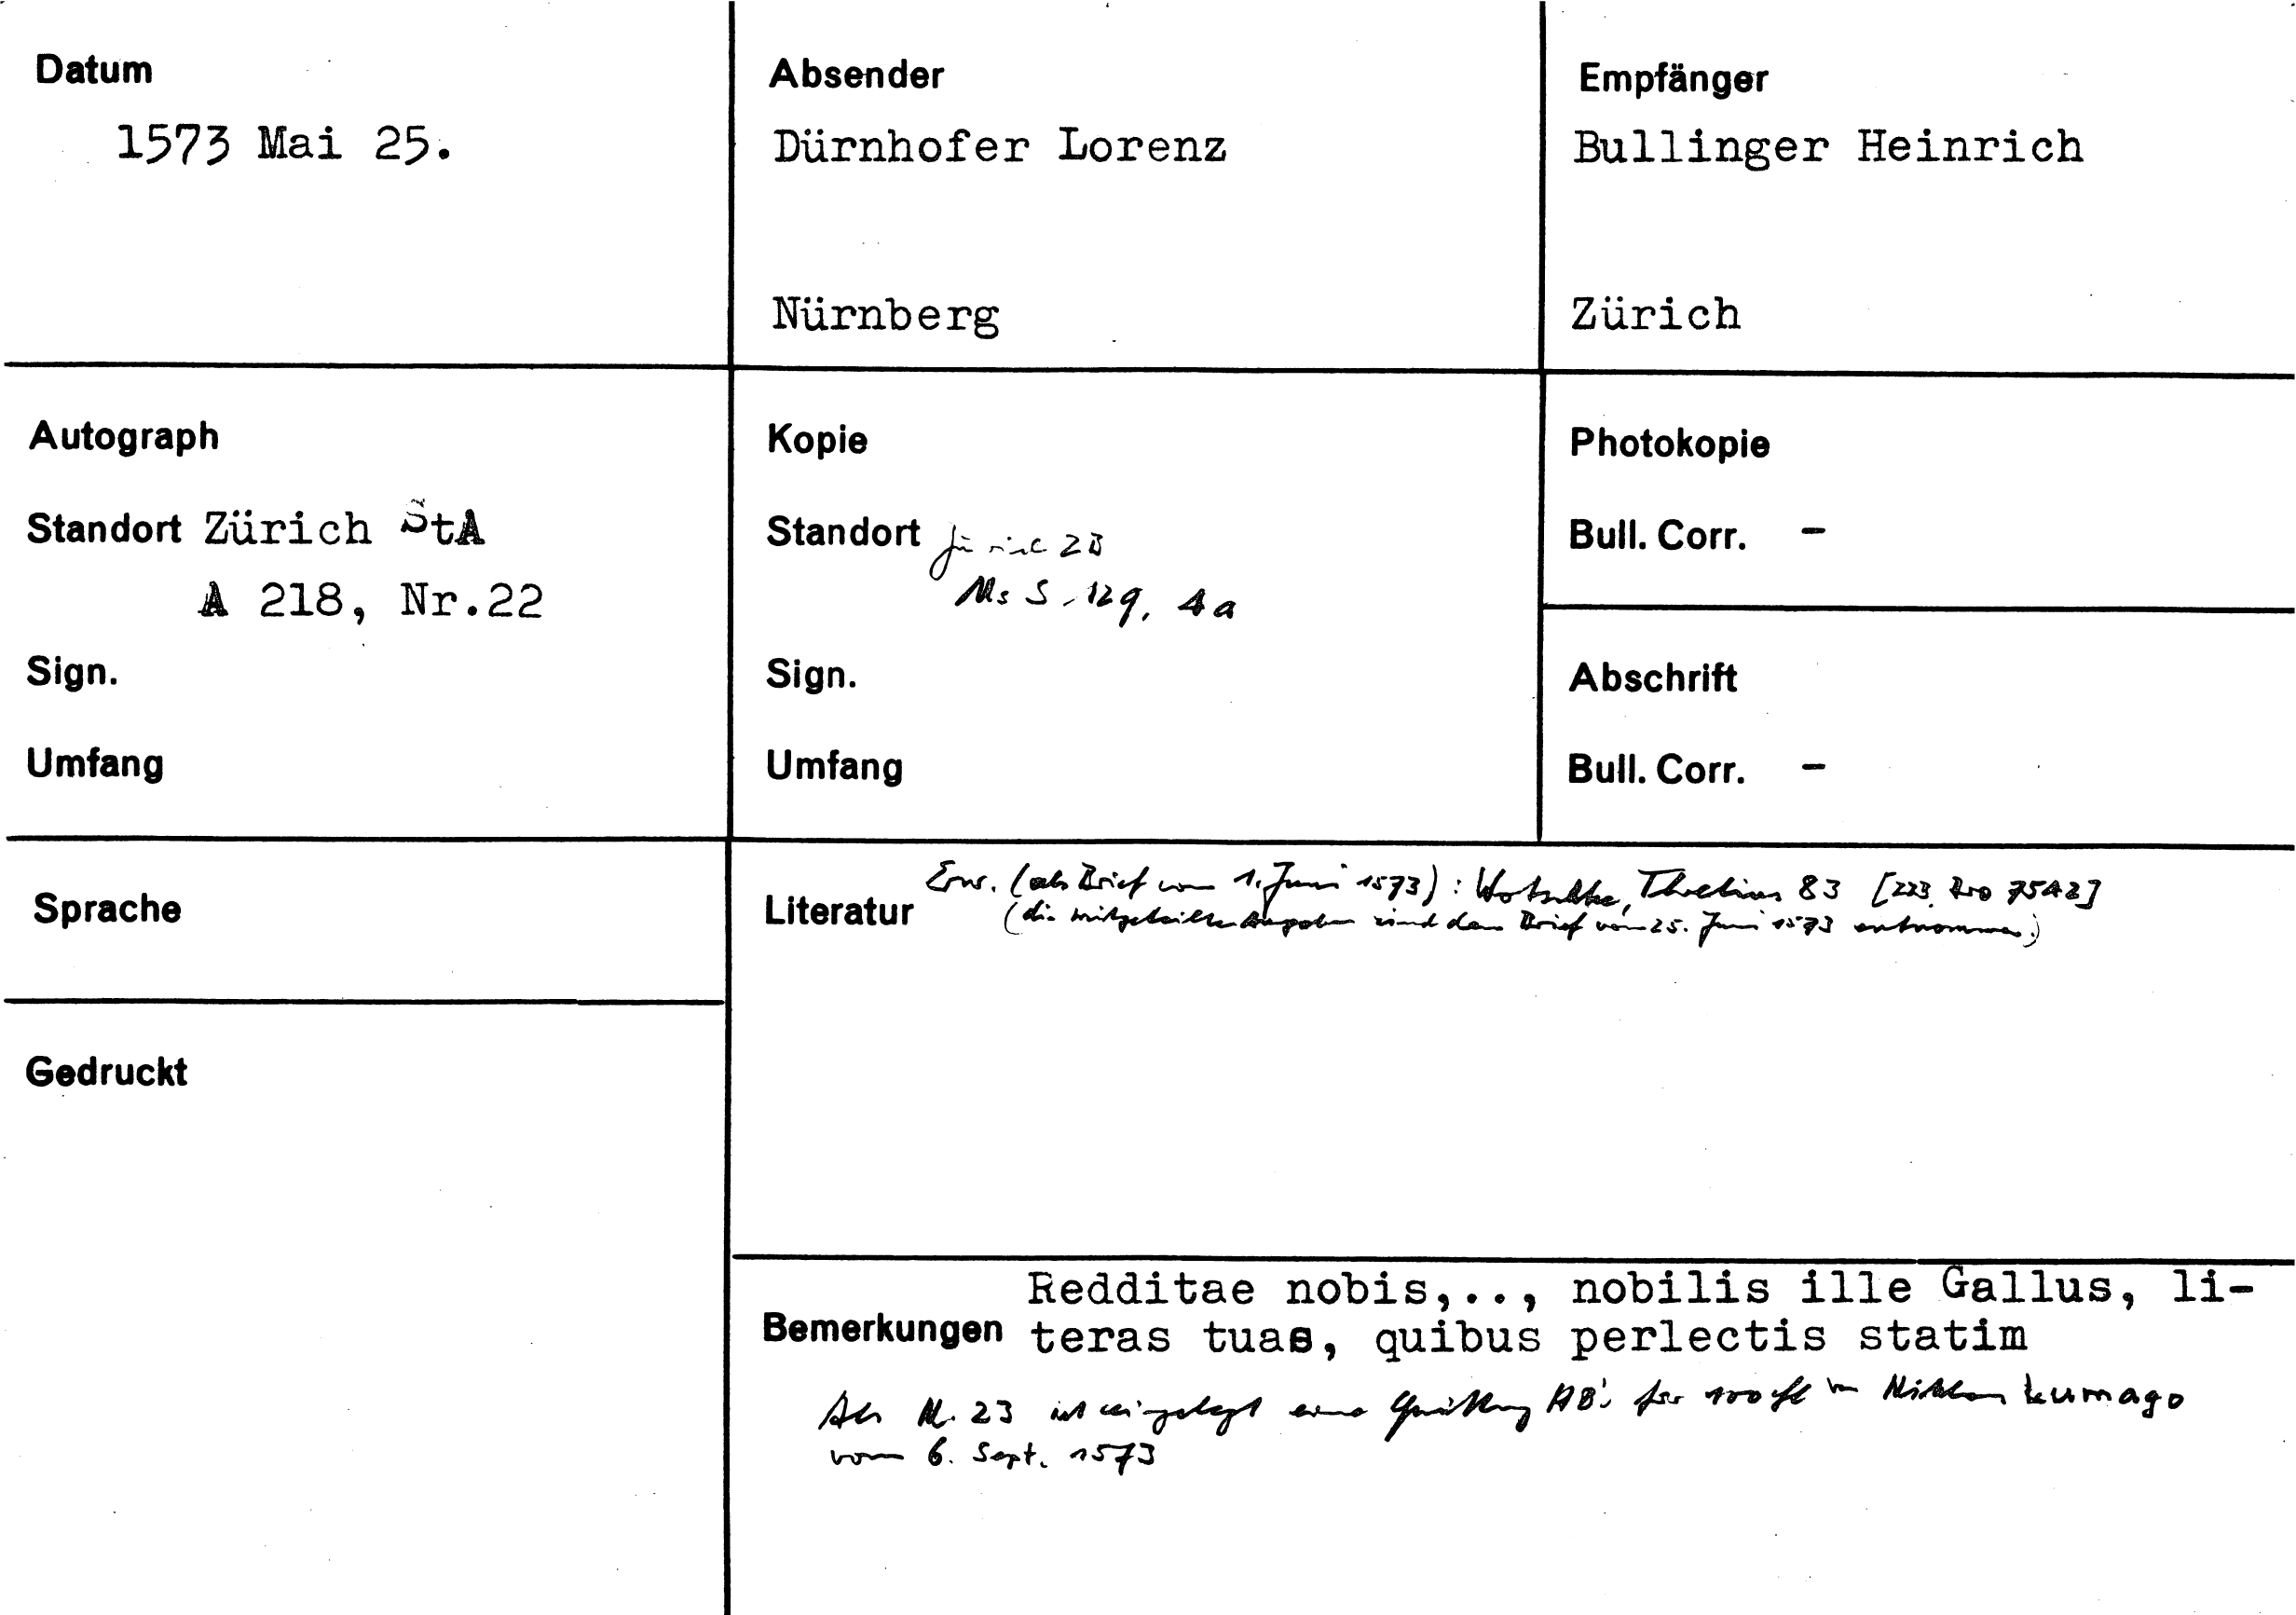 Datum
1573 Mai 25.
Absender
Dürnhofer Lorenz
Nürnberg
Empfänger
Bullinger Heinrich
Zürich
Autograph
Standort Zürich StA
A 218, Nr.22
Sign.
Umfang
Kopie
Standort Zürich ZB
Ms S 129, 4a
Sign.
Umfang
Photokopie
Bull. Corr. -
Abschrift
Bull. Corr. -
Sprache
Gedruckt
Literatur Erw. (als Brief vom 1. Juni 1573): Wotschke, Thretius 83
(die mitgeteilten Angaben sind dem Brief vom 25. Juni 1573 entnommen.)
Bemerkungen Redditae nobis,.., nobilis ille Gallus, li-
teras tuas, quibus perlectis statim
Als Nr. 23 ist eingelegt eine Quittung für 100 fl
vom 6. Sept. 1573